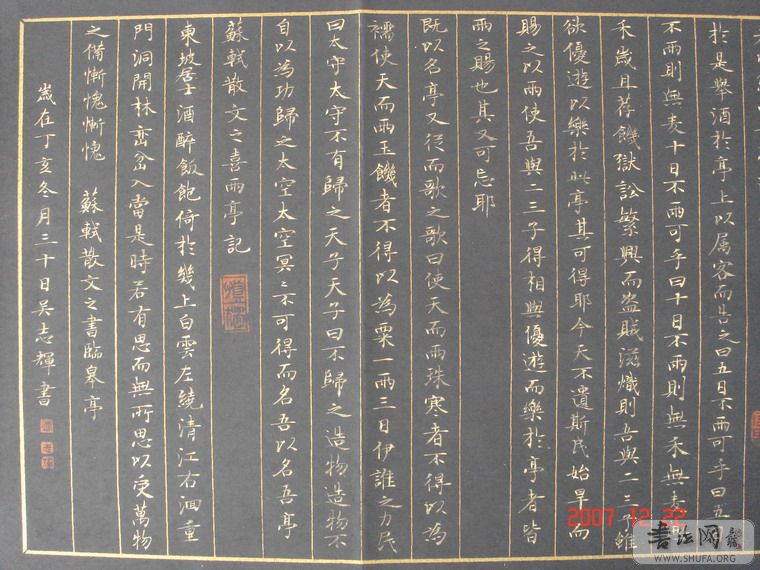 於是舉酒於亭上以属客而告之曰五日不雨可乎曰五日
不雨則無麦十日不雨可乎曰十日不雨則無禾無麦無
禾歲且荐饑獄訟繁興而盗賊滋熾則吾與二三子雖
欲優遊以樂於此亭其可得耶今天不遺斯民始旱而
賜之以雨使吾與二三子得相與優遊而樂於亭者皆
雨之賜也其又可忘耶
既以名亭又従而歌之歌曰使天而雨珠寒者不得以為
襦使天而雨玉饑者不得以為粟一雨三日伊誰之力民
曰太守太守不有歸之天子天子曰不歸之造物造物不
自以為功歸之太空太空冥〻不可得而名吾以名吾亭
蘇軾散文之喜雨亭記
東坡居士酒醉飯飽倚於幾上白雲左繞清江右洄重
門洞開林巒岔入當是時若有思而無所思以受萬物
之備慚愧慚愧 蘇軾散文之書臨皋亭
歲在丁亥冬月三十日吴志輝書
2007 12 22
書法网
WWW.SHUFA.ORG